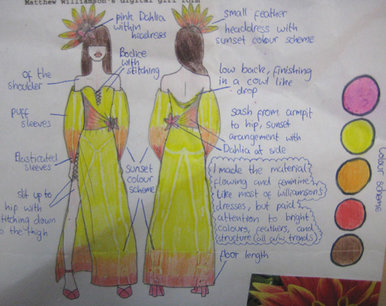 Matthew Williamson's digital girl
pink Dahlia
within
headress
small feather
headdress with
sunset colour scheme
Bodice
with
stitching
of the
shoulder
low back, finishing
in a cowl like
drop
puff
sleeves
sash from armpit
to hip, sunset
arrangement with
Dahlia at side
Elasticated
sleeves
sunset
colour
scheme
I made the material
flowing and feminine
like most of williamsons
dresses, but paid
attention to bright
colours, feathers, and
structure (all a/w trends)
slit up to
hip with
stitching down
to the thigh
floor length
Colour scheme